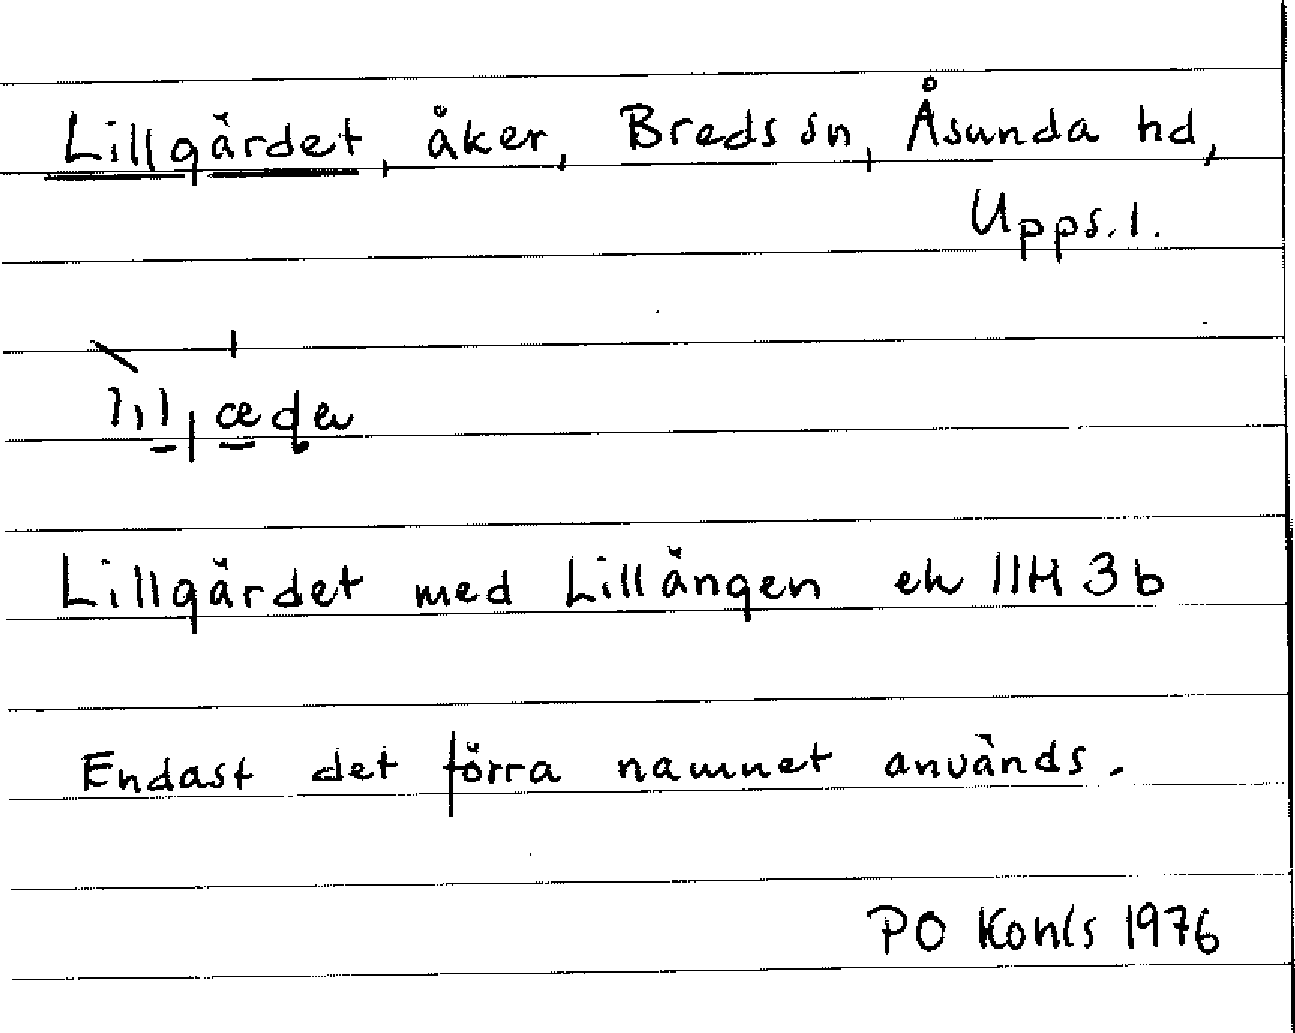 Lillgärdet, åker, Breds sn, Åsunda hd,
Upps. l.
Lillgärdet med Lillängen ek 11H 3b
Endast det förra namnet används.
PO Konls 1976